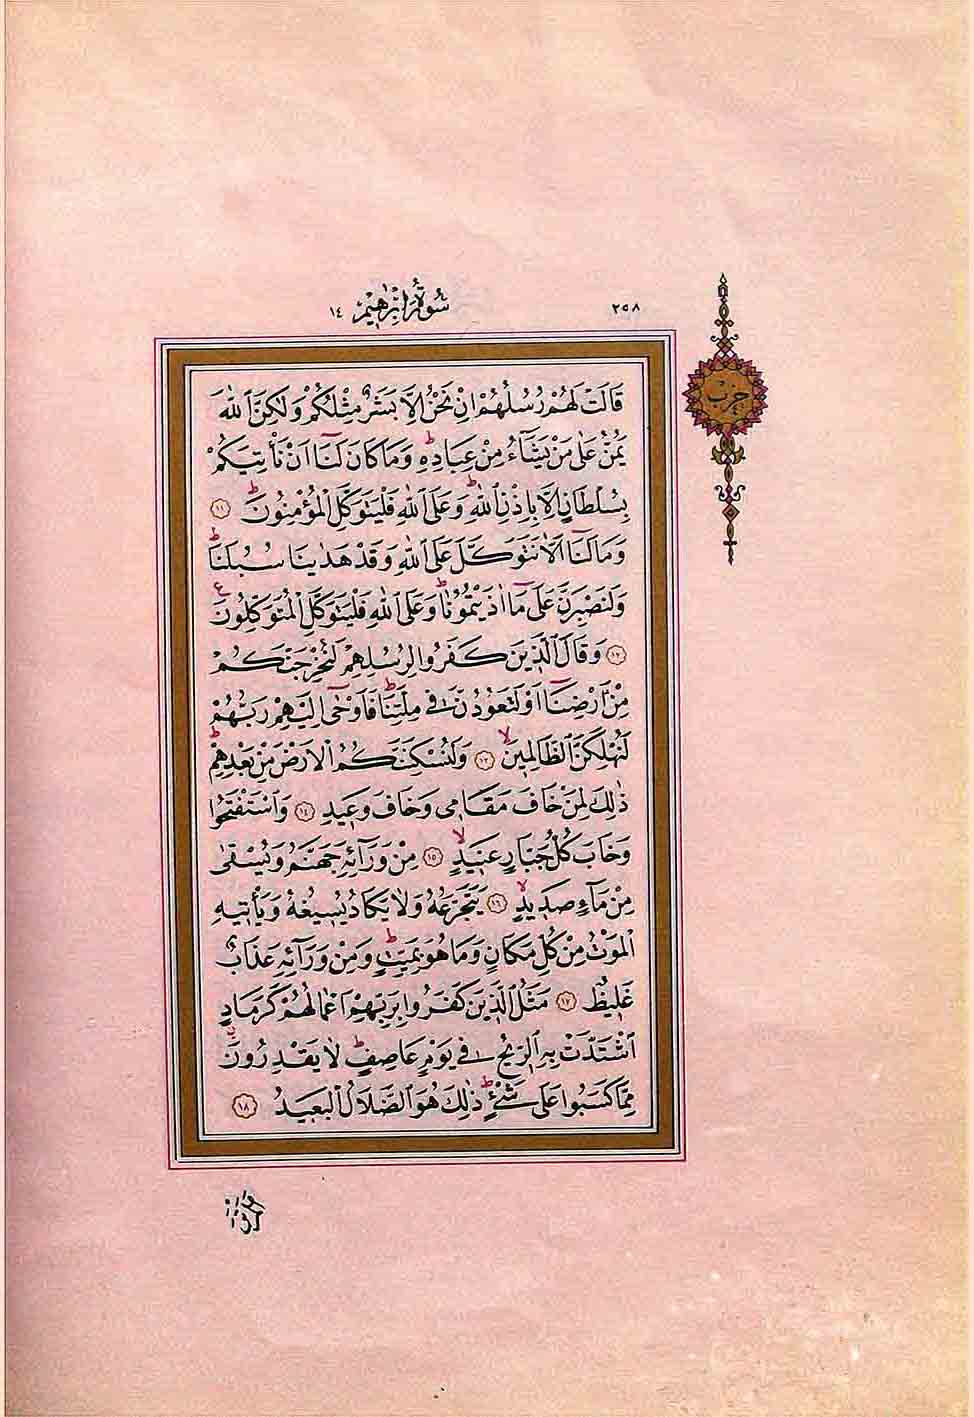 ٢٥٨
سُورَةُ اِبْرٰه۪يمَ ١٤
حزب
قَالَتْ لَهُمْ رُسُلُهُمْ اِنْ نَحْنُ اِلَّا بَشَرٌ مِثْلُكُمْ وَلٰكِنَّ اللّٰهَ
يَمُنُّ عَلٰى مَنْ يَشَٓاءُ مِنْ عِبَادِه۪ۜ وَمَا كَانَ لَنَٓا اَنْ نَأْتِيَكُمْ
بِسُلْطَانٍ اِلَّا بِاِذْنِ اللّٰهِۜ وَعَلَى اللّٰهِ فَلْيَتَوَكَّلِ الْمُؤْمِنُونَۜ ﴿١١﴾
وَمَا لَنَٓا اَلَّا نَتَوَكَّلَ عَلَى اللّٰهِ وَقَدْ هَدٰينَا سُبُلَنَاۜ
وَلَنَصْبِرَنَّ عَلٰى مَٓا اٰذَيْتُمُونَاۜ وَعَلَى اللّٰهِ فَلْيَتَوَكَّلِ الْمُتَوَكِّلُونَ۟
﴿١٢﴾ وَقَالَ الَّذ۪ينَ كَفَرُوا لِرُسُلِهِمْ لَنُخْرِجَنَّكُمْ
مِنْ اَرْضِنَٓا اَوْ لَتَعُودُنَّ ف۪ي مِلَّتِنَاۜ فَاَوْحٰٓى اِلَيْهِمْ رَبُّهُمْ
لَنُهْلِكَنَّ الظَّالِم۪ينَۙ ﴿١٣﴾ وَلَنُسْكِنَنَّكُمُ الْاَرْضَ مِنْ بَعْدِهِمْۜ
ذٰلِكَ لِمَنْ خَافَ مَقَام۪ي وَخَافَ وَع۪يدِ ﴿١٤﴾ وَاسْتَفْتَحُوا
وَخَابَ كُلُّ جَبَّارٍ عَن۪يدٍۙ ﴿١٥﴾ مِنْ وَرَٓائِه۪ جَهَنَّمُ وَيُسْقٰى
مِنْ مَٓاءٍ صَد۪يدٍۙ ﴿١٦﴾ يَتَجَرَّعُهُ وَلَا يَكَادُ يُس۪يغُهُ وَيَأْت۪يهِ
الْمَوْتُ مِنْ كُلِّ مَكَانٍ وَمَا هُوَ بِمَيِّتٍۜ وَمِنْ وَرَٓائِه۪ عَذَابٌ
غَل۪يظٌ ﴿١٧﴾ مَثَلُ الَّذ۪ينَ كَفَرُوا بِرَبِّهِمْ اَعْمَالُهُمْ كَرَمَادٍۨ
اشْتَدَّتْ بِهِ الرّ۪يحُ ف۪ي يَوْمٍ عَاصِفٍۜ لَا يَقْدِرُونَ
مِمَّا كَسَبُوا عَلٰى شَيْءٍۜ ذٰلِكَ هُوَ الضَّلَالُ الْبَع۪يدُ ﴿١٨﴾